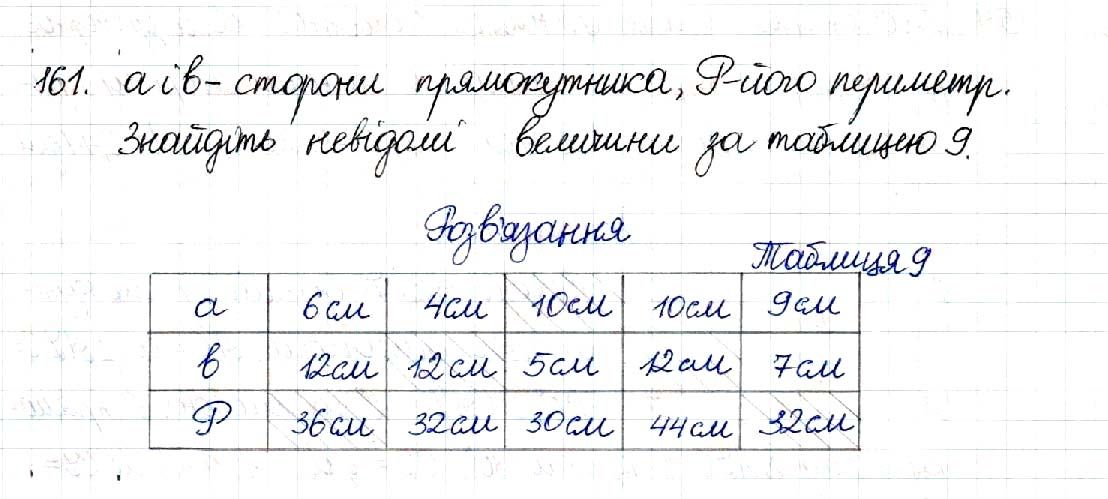 161. а і в - сторони прямокутника, Р-його периметр.
Знайдіть невідомі величини за таблицею 9.
Розв'язання
Таблиця 9
а 6см 4см 10см 10см 9см
в 12см 12см 5см 12см 7см
Р 36см 32см 30см 44см 32см